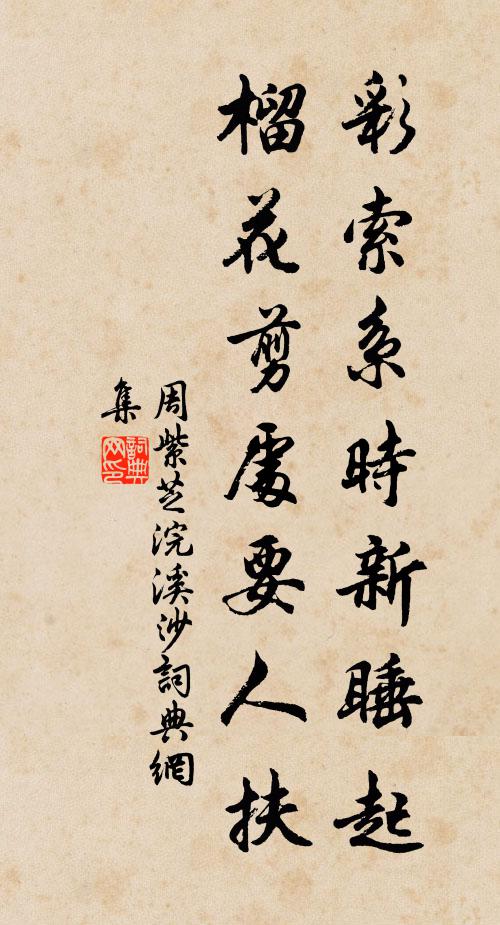 彩索系時新睡起
榴花剪處要人扶
周紫芝浣溪沙詞典網
集
詞典
网印